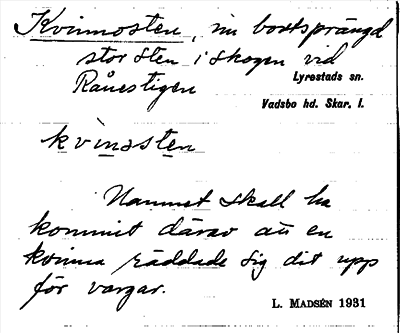 Kvinnosten, nu bortsprängd
stor sten i skogen vid
Rånestigen
Lyrestads sn.
Vadsbo hd. Skar. l.
kvinɔsten
Namnet skall ha
kommit därav att en
kvinna räddade sig dit upp
för vargar.
L. MADSÉN 1931